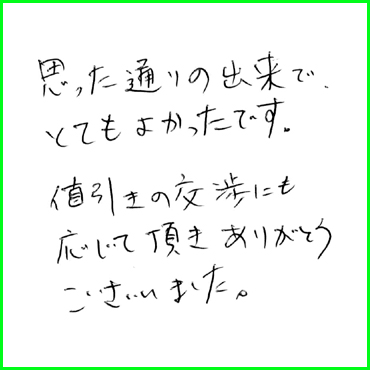 思った通りの出来で、
とてもよかったです。
値引きの交渉にも
応じて頂きありがとう
ございました。